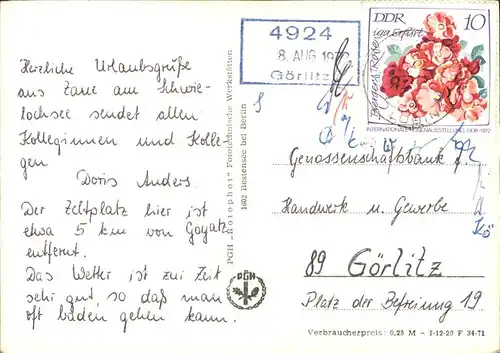 Herzliche Urlaubsgrüße
aus Zaue am Schwie-
lochsee sendet allen
Kolleginnen und Kolle-
gen
Doris Anders.
Der Zeltplatz hier ist
etwa 5 km von Goyatz
entfernt.
Das Wetter ist zur Zeit
sehr gut, so daß man
oft baden gehen kann.
PGH „Rotophot" Fototechnische Werkstätten
1602 Bestensee bei Berlin
PGH
4924
8. AUG 1972
Görlitz
DDR 10
iga Erfurt
Bergers Rose
INTERNATIONALE ROSENAUSSTELLUNG DDR · 1972
Genossenschaftsbank f.
Handwerk u. Gewerbe
89 Görlitz
Platz der Befreiung 19
Verbraucherpreis: 0,25 M – I-12-20 F 34-71